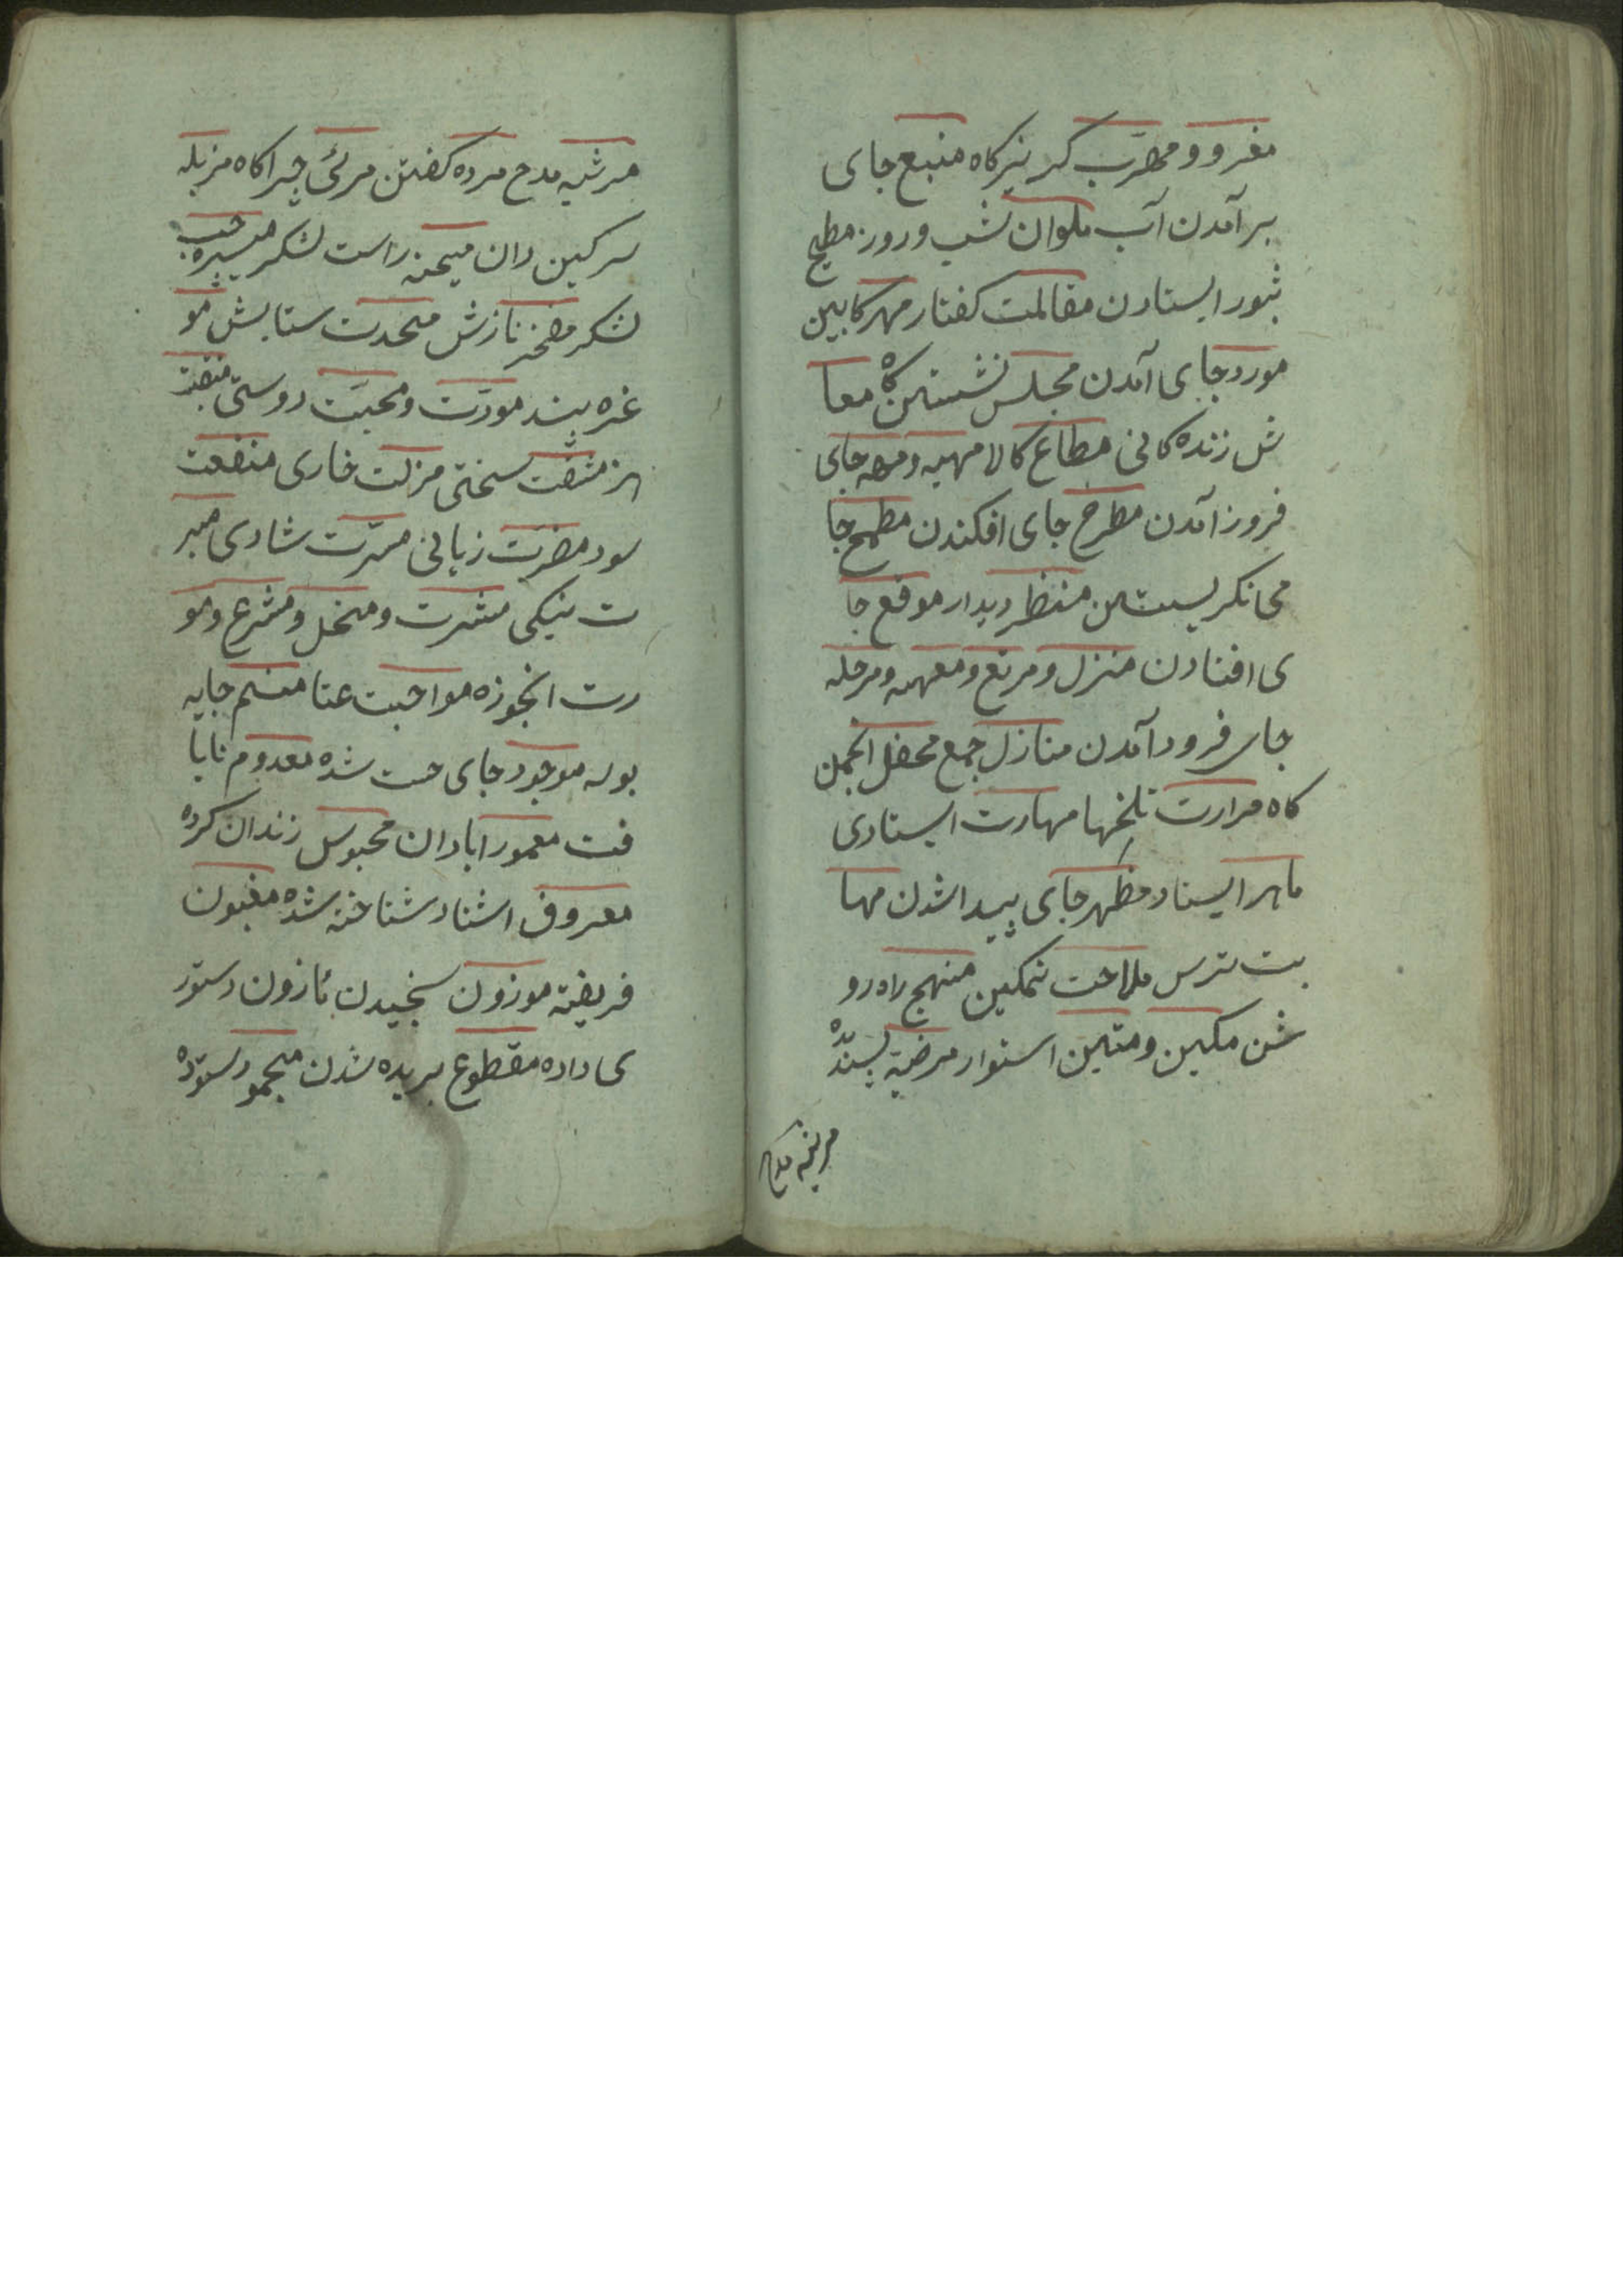 مفر و ومهرب کریزکاه منبع جای
برآمدن آب ملوان شب وروز مطیح
ثبور ایستادن مقالمت کفتار مهر کابین
مورد جای آمدن مجلس نشستن کاه معا
ش زنده کانی مطاع کالا مهبه ومهه جای
فروز آمدن مطرح جای افکندن مطمح جا
محا نکریستن منظر دیدار موقع جا
ی افتادن منزل و مربع و معهه و مرحله
جای فرود آمدن منازل جمع محفل انجمن
کاه مرارت تلخیها مهارت ایستادی
ماهر ایستاد مظهر جای پیدا شدن مها
بت ترس ملاحت نمکین منهج راه رو
شن مکین ومتین استوار مرضیه پسنده
مرثیه مدح
مرثیه مدح مرده کفتن مرئی چراکاه مزبله
سرکین دان میمنه راست لشکر میسره چپ
لشکر مفخر نازش محمدت ستایش مو
عزه بند مودّت ومحبّت دوستی منقبت
هنر مشقت سختی مزلت خاری منفعت
سود مضرت زیانی مسرّت شادی مبر
ت نیکی مشرت و منحل و مشرع و مو
رت انجوزه مواجبت عتا منسم جایه
بوله موجود جای حست شده معدوم نایا
فت معمور ابادان محبوس زندان کرده
معروف اشناد شناخته شده مغبون
فریفته موزون سنجیدن مازون دستور
ی داده مقطوع بریده شدن محمود ستوده